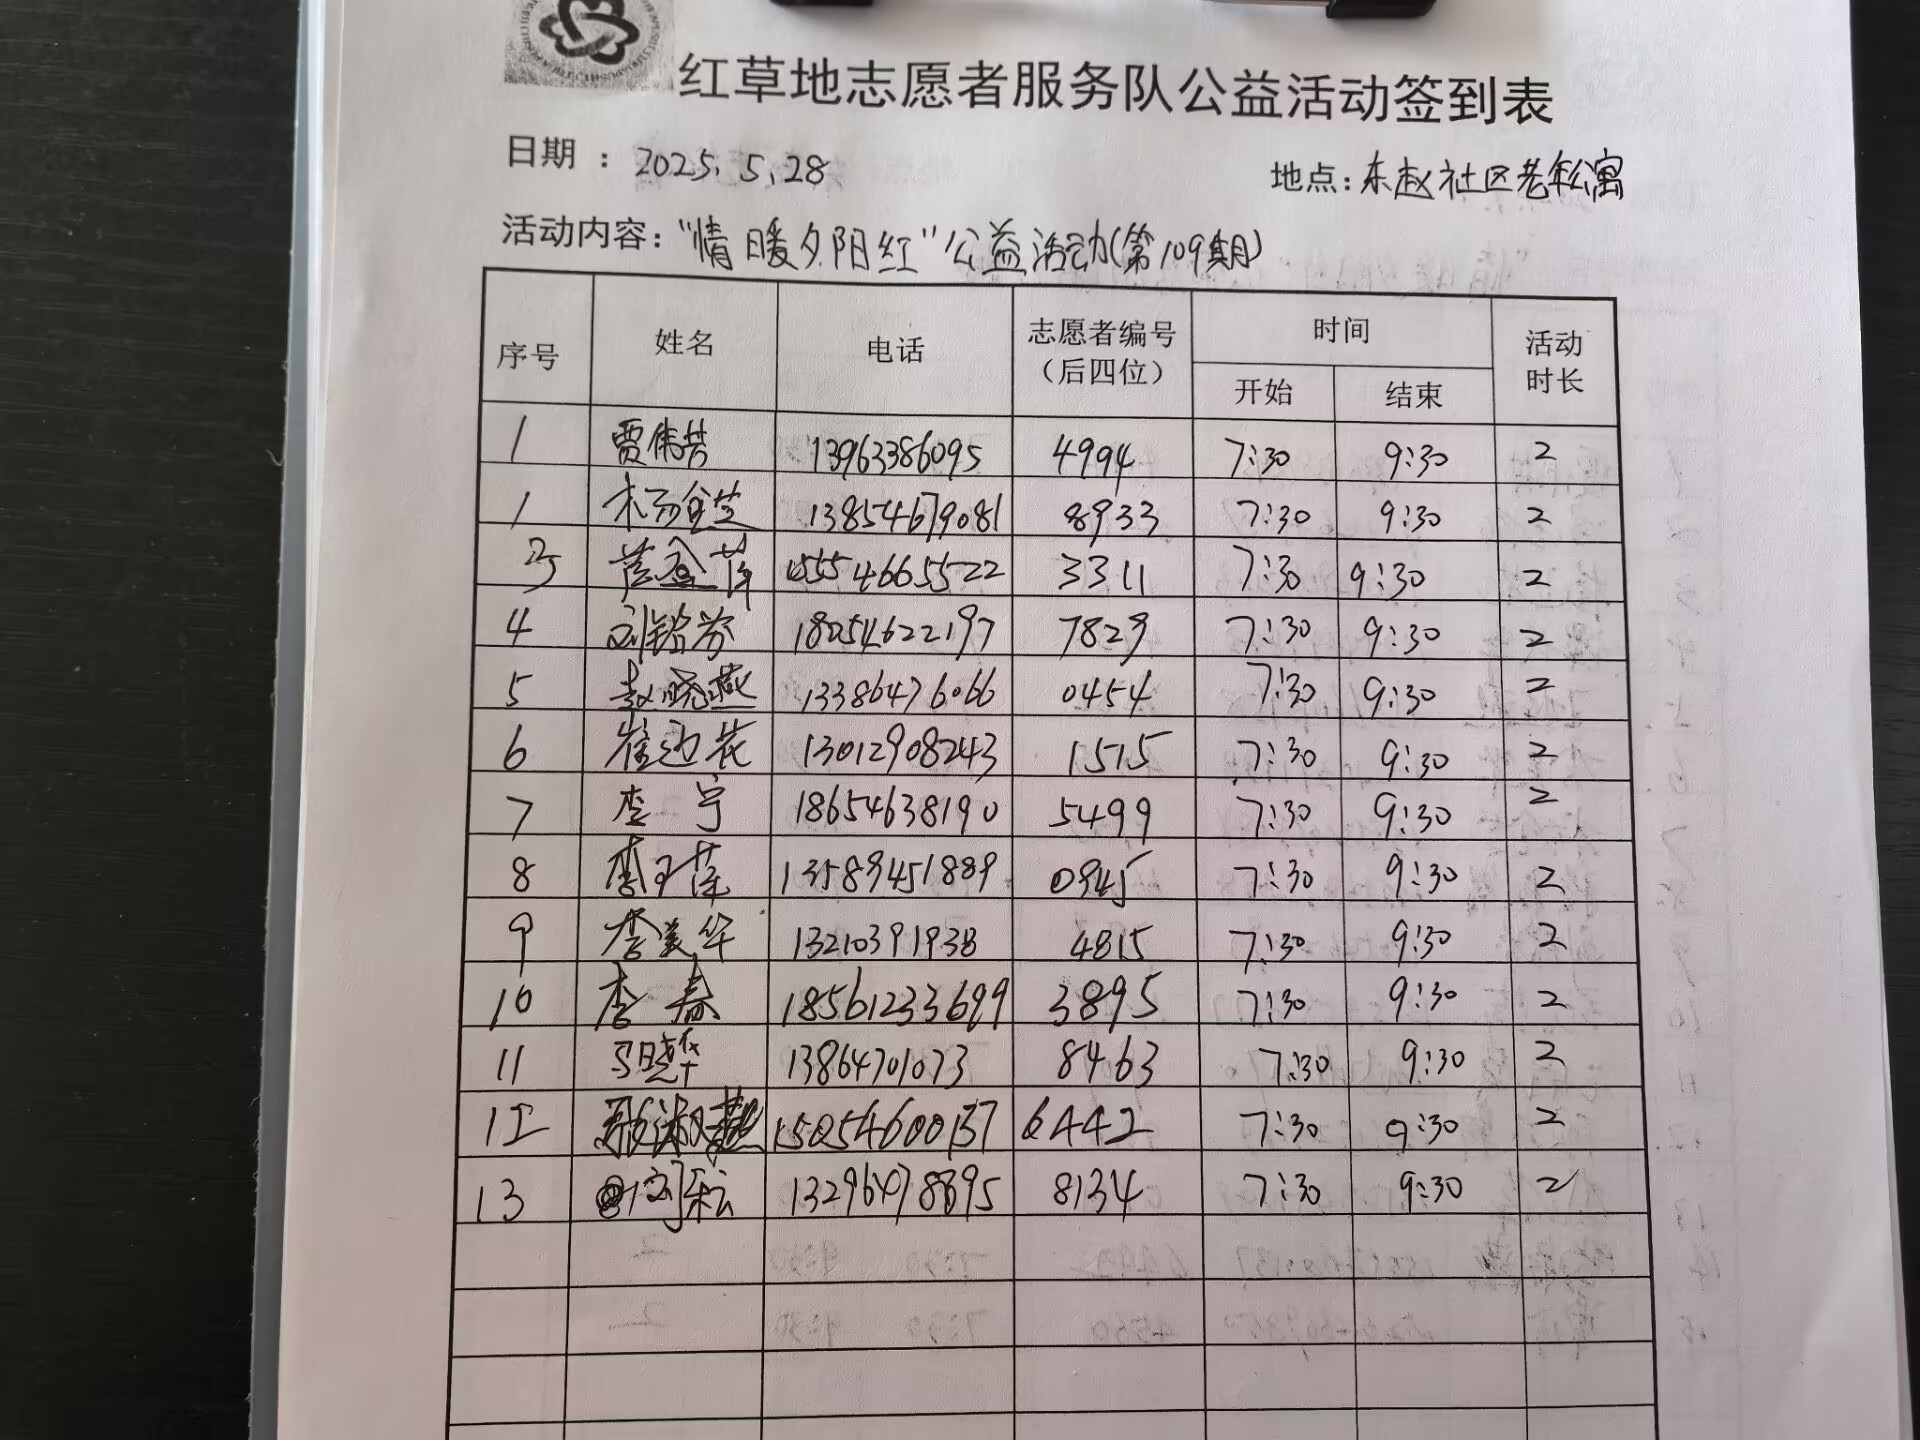 红草地志愿者服务队公益活动签到表
日期：2025.5.28 地点：东赵社区老年公寓
活动内容："情暖夕阳红"公益活动(第109期)
序号 姓名 电话 志愿者编号（后四位） 时间 活动时长
开始 结束
1 贾伟芳 13963386095 4994 7:30 9:30 2
1 杨金芝 13854679081 8933 7:30 9:30 2
3 15554665522 3311 7:30 9:30 2
4 刘铭芬 18054622197 7829 7:30 9:30 2
5 赵晓燕 13386476066 0454 7:30 9:30 2
6 崔迎花 13012908243 1515 7:30 9:30 2
7 李宁 18654638190 5499 7:30 9:30 2
8 李玉萍 13589451889 0945 7:30 9:30 2
9 李美华 13210391938 4815 7:30 9:30 2
10 李春 18561233699 3895 7:30 9:30 2
11 马晓华 13864701073 8463 7:30 9:30 2
12 15054600137 6442 7:30 9:30 2
13 8134 7:30 9:30 2